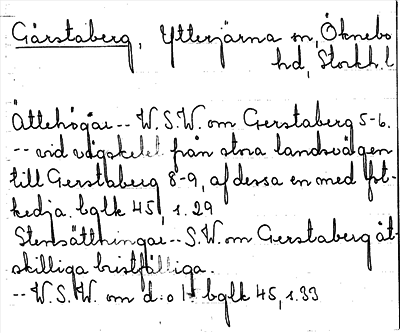 Gärstaberg, Ytterjärna sn, Öknebo
hd, Stockh. l
Ättehögar -- W.S.W. om Gerstaberg 5-6.
-- vid vägskelet från stora landsvägen
till Gerstaberg 8-9, af dessa en med fot-
kedja. bglk 45, s. 29
Stensättningar -- S.W. om Gerstaberg åt-
skilliga bristfälliga.
-- W.S.W. om d:o 1 bglk 45, s. 33